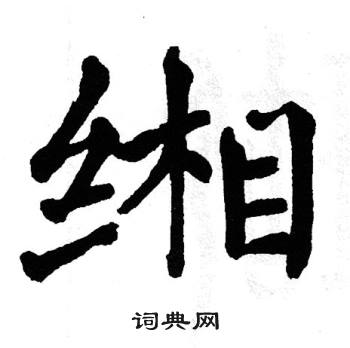 缃
词典网